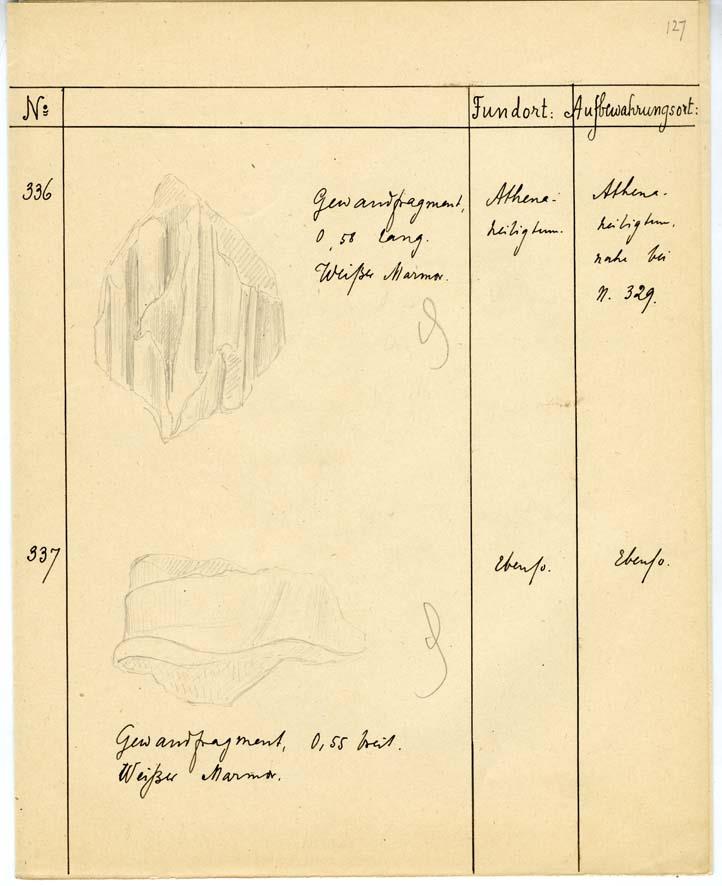 127
No Fundort: Aufbewahrungsort:
336
Gewandfragment,
0,58 lang.
Weißer Marmor.
Athena-
heiligtum.
Athena-
heiligtum,
nahe bei
N. 329.
337
Ebenso.
Ebenso.
Gewandfragment, 0,55 breit.
Weißer Marmor.